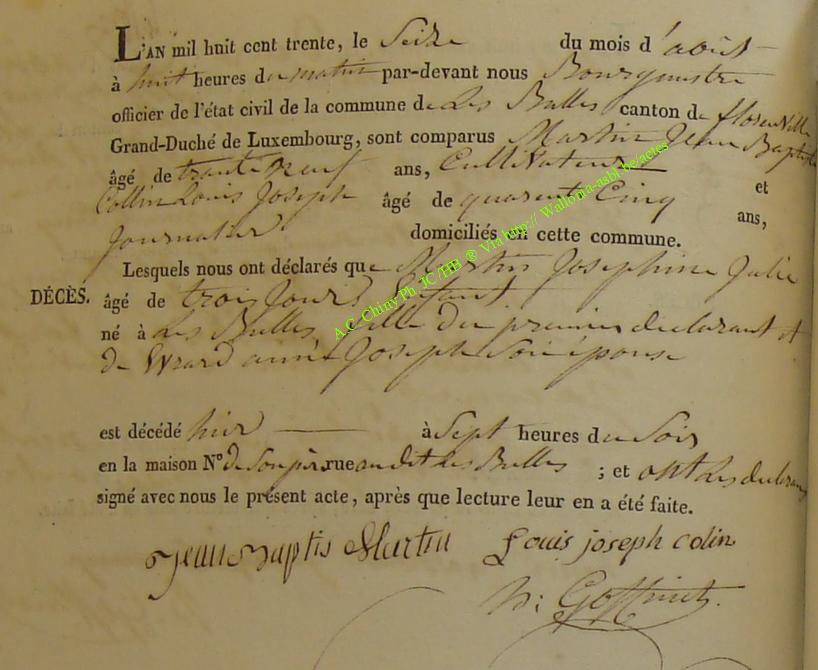 L'AN mil huit cent trente, le Seize du mois d'août
à huit heures du matin par-devant nous Bourgmestre
officier de l'état civil de la commune de Les Bulles canton de florenville
Grand-Duché de Luxembourg, sont comparus Martin Jean Baptiste
âgé de trente neuf ans, Cultivateur et
Collin Louis Joseph âgé de quarente Cinq ans,
Journalier domiciliés en cette commune.
Lesquels nous ont déclarés que Martin Josephine Julie
DÉCÈS. âgé de trois Jours Enfant
né à Les Bulles, fille du premier declarant et
de Evrard anne Joseph Son épouse
est décédé hier à Sept heures du Soir
en la maison N° de Son père rue au dit Les Bulles ; et ont Les declarans
signé avec nous le présent acte, après que lecture leur en a été faite.
Jean Baptis Martin Louis joseph colin
Goffinet
A.C. Chiny Ph. JC / BB ® Via http:// Wallonia-asbl.be/actes